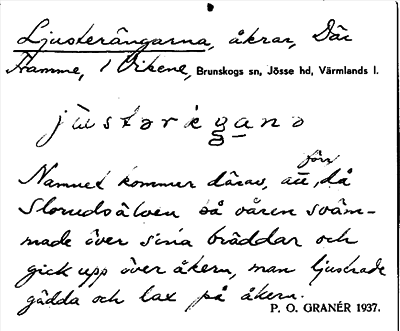 Ljusterängarna, åkrar, Där
Framme, i Vikene, Brunskogs sn, Jösse hd, Värmlands l.
förr
Namnet kommer därav, att, då
Slorudsälven på våren sväm-
made över sina bräddar och
gick upp över åkern, man ljustrade
gädda och lax på åkern.
P. O. GRANÉR 1937.